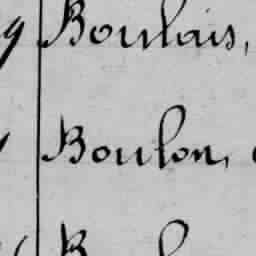 g Boulais,
Boulon,